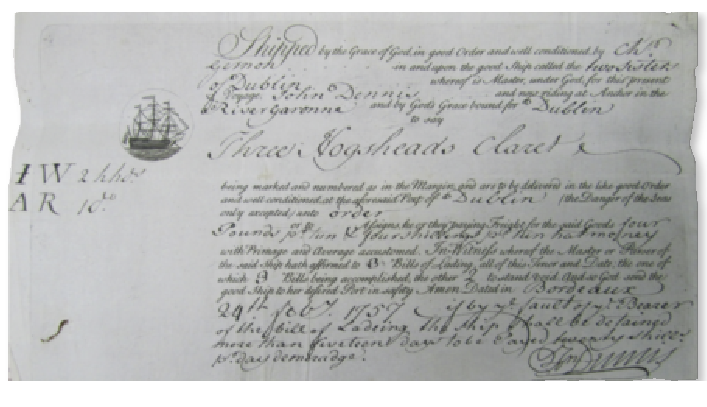 Shipped by the Grace of God, in good Order and well conditioned, by Chr.
Gernon in and upon the good Ship called the two Sisters
of Dublin whereof is Master, under God, for this present
Voyage, John Dennis and now riding at Anchor in the
River Garonne and by God's Grace bound for Dublin
to say
Three Hogsheads Claret
I W 2 hhds
A R 1 do
being marked and numbered as in the Margin, and are to be delivered in the like good Order
and well conditioned, at the aforesaid Port of Dublin (the Danger of the Seas
only excepted) unto order
or to Assigns, he or they paying Freight for the said Goods four
Pounds pr tun & four shillings pr tun
with Primage and Average accustomed. In Witness whereof the Master or Purser of
the said Ship hath affirmed to 3 Bills of Lading, all of this Tenor and Date, the one of
which 3 Bills being accomplished, the other 2 to stand void. And so God send the
good Ship to her desired Port in safety. Amen. Dated in Bordeaux
24th Feby. 1757 if by ye fault of ye Bearer
of this bill of Ladeing the ship shall be detained
more than fiveteen days to be payed twenty shills
pr. day demuradge.
Jn Dennis